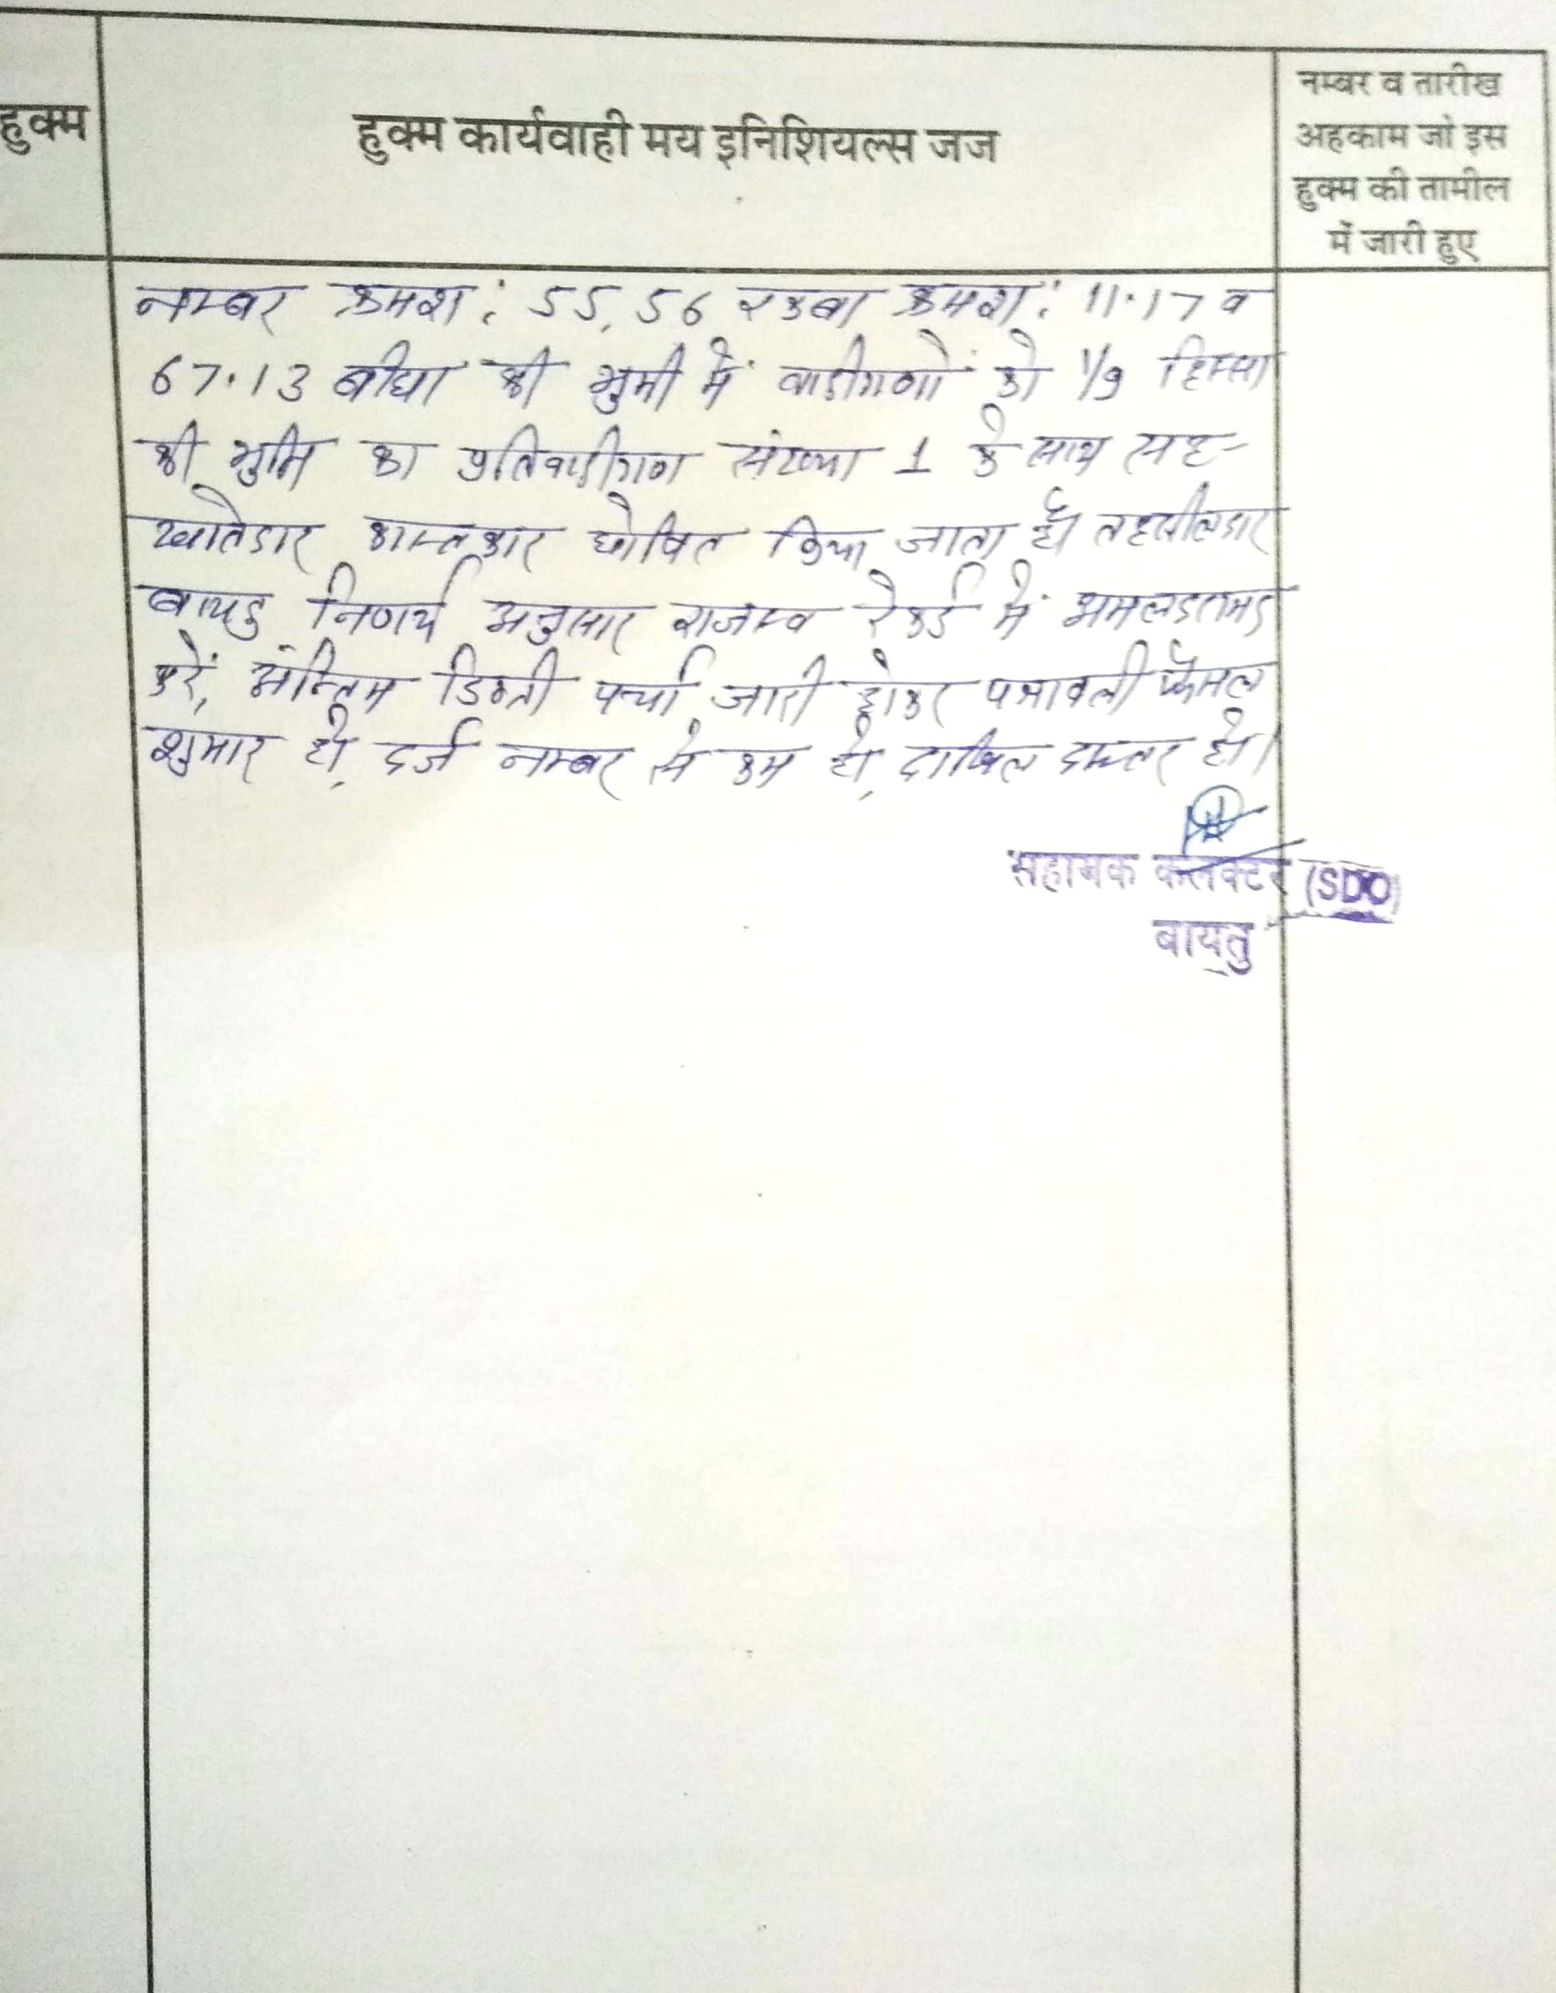 हुक्म
हुक्म कार्यवाही मय इनिशियल्स जज
नम्बर व तारीख
अहकाम जो इस
हुक्म की तामील
में जारी हुए
नम्बर क्रमश: 55, 56 रकबा क्रमश: 11.17 व
67.13 बीघा की भुमी में वादीगणों को 1/9 हिस्सा
की भुमि का प्रतिवादीगण संख्या 1 के साथ सह-
खातेदार काश्तकार घोषित किया जाता है। तहसीलदार
बायतु निणर्य अनुसार राजस्व रेकर्ड में अमलदरामद
करें, अन्तिम डिक्री पर्चा जारी होकर पत्रावली फैसल
शुमार हो, दर्ज नम्बर से कम हो, दाखिल दफ्तर हो।
सहायक कलक्टर (SDO)
बायतु